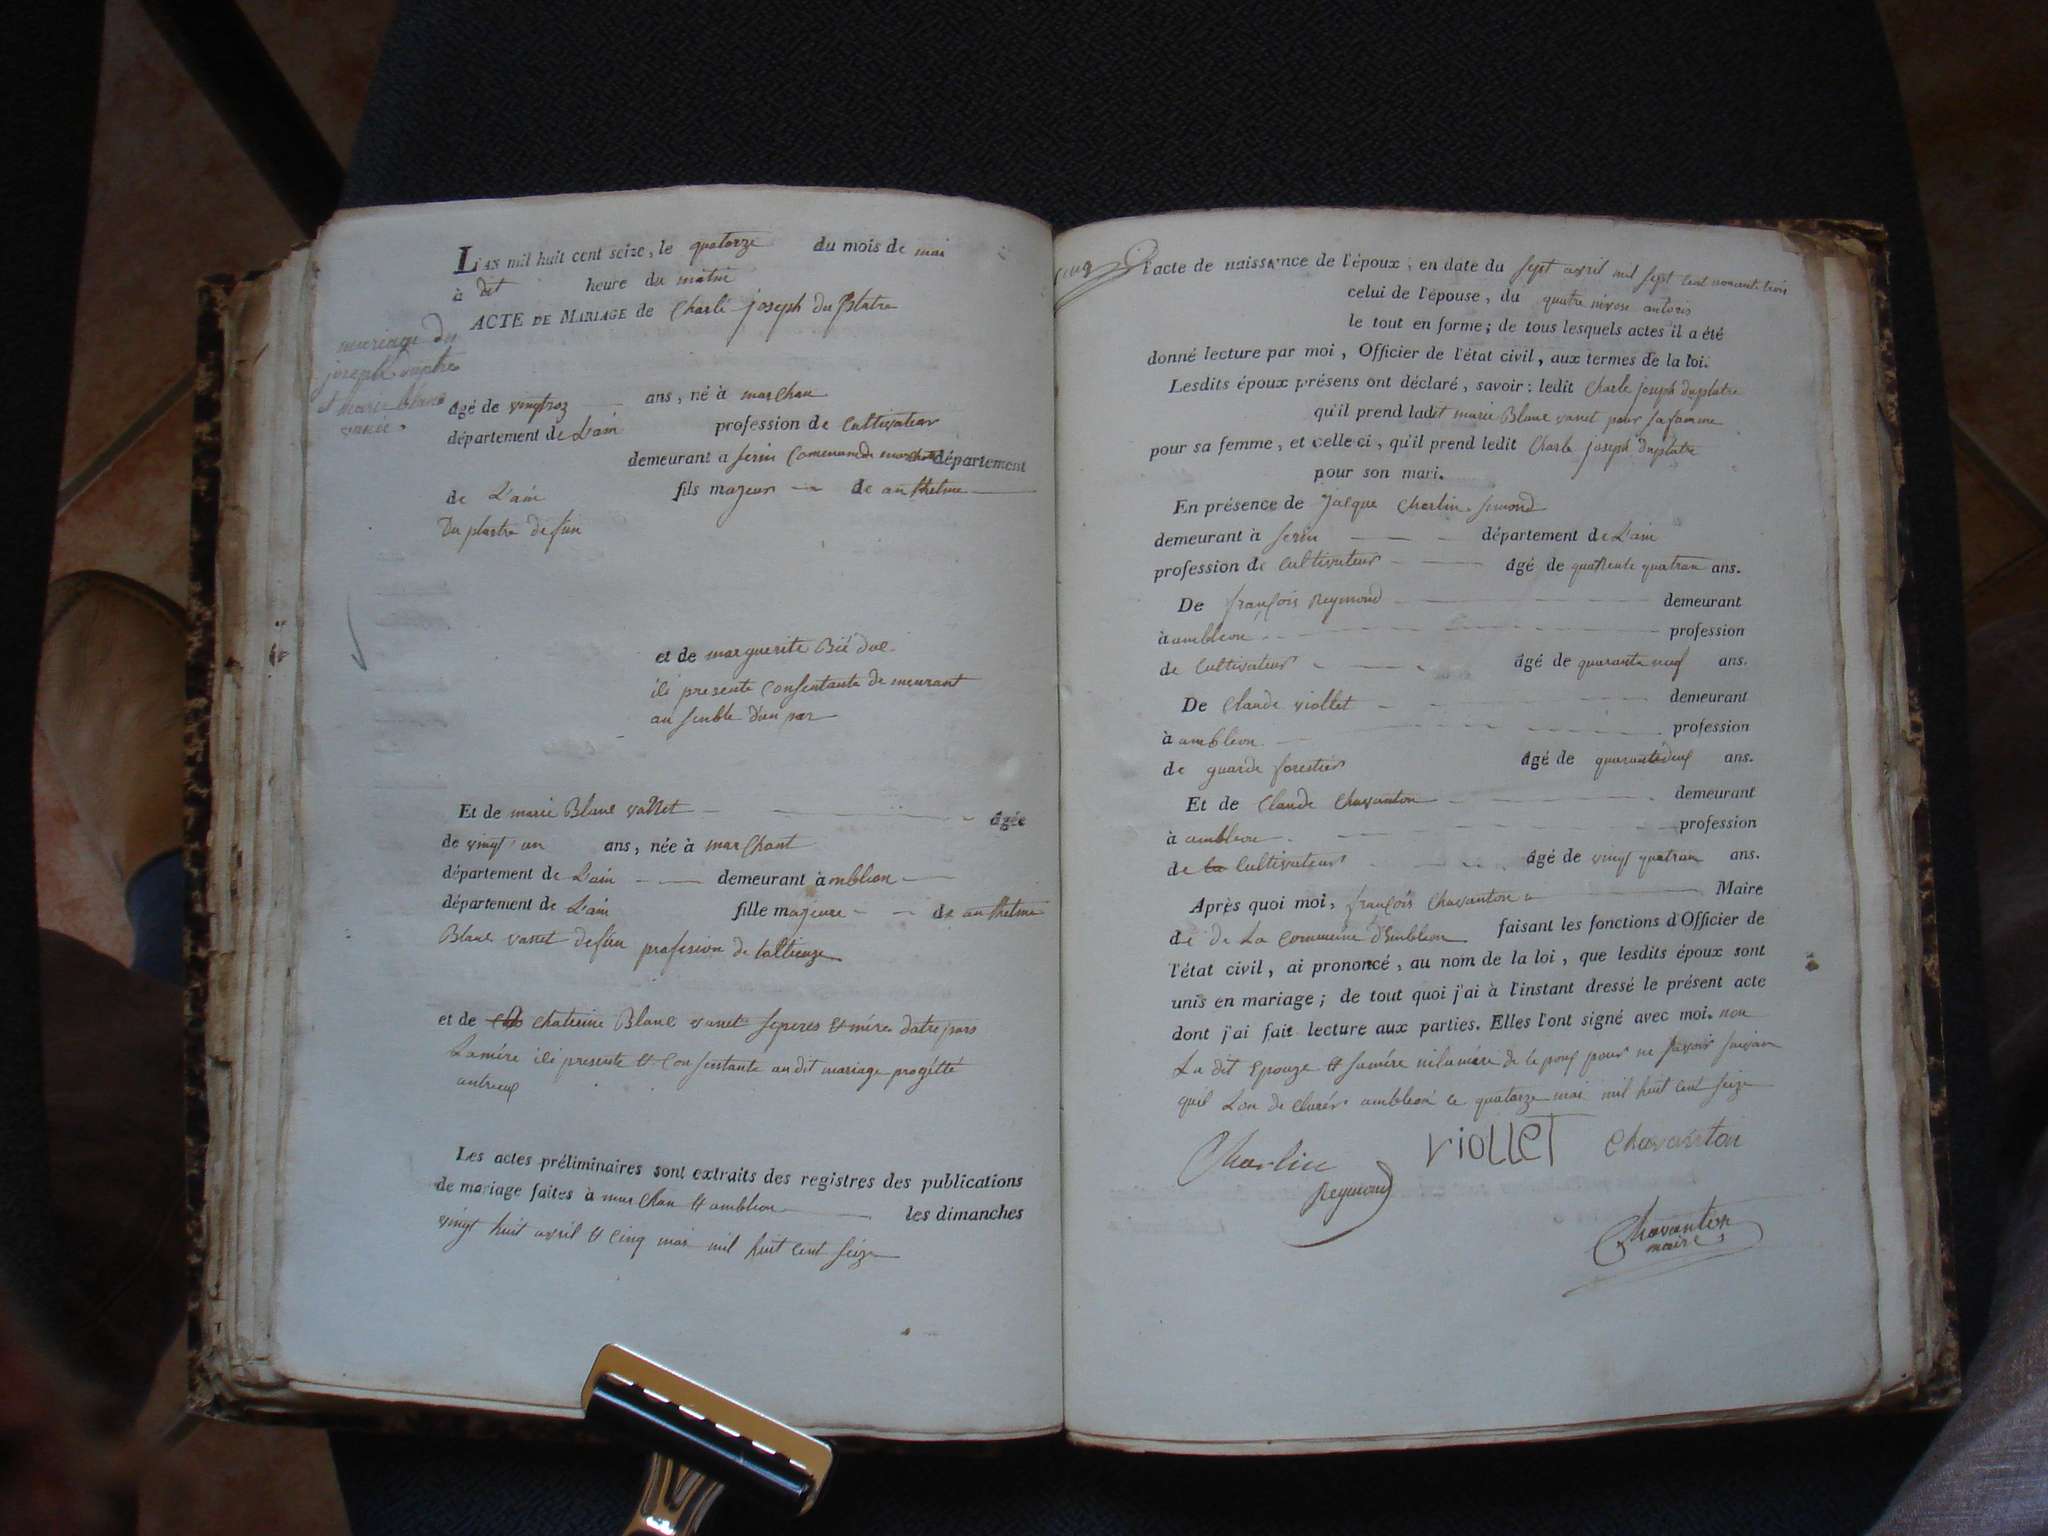 L'AN mil huit cent seize, le quatorze du mois de mai
à dit heure du matin
ACTE DE MARIAGE de Charle joseph du platre
mariage du
joseph duplatre
et marie blanc
vanet.
âgé de vingtroz ans, né à marchan
département de L'ain profession de Cultivateur
demeurant a serin Comenamde marchan département
de L'ain fils majeur de anthelme
Du platre defun
et de marguerite Bié due
ili presente Consentante de meurant
an semble d'un par
Et de marie Blanc vanet âgée
de vingt un ans, née à marchant
département de L'ain demeurant àmbleon
département de L'ain fille majeure de anthelme
Blanc vanet defun profesion de talieuze
et de chaterine Blanc vanet seperes et mére datre pars
La mére ili presente et Consentante audit mariage progétté
antreux
Les actes préliminaires sont extraits des registres des publications
de mariage faites à marchan et ambleon les dimanches
vingt huit avril et cinq mai mil huit cent seize
l'acte de naissance de l'époux, en date du sept avril mil sept cent nonante trois
celui de l'épouse, du quatre nivose antrois
le tout en forme; de tous lesquels actes il a été
donné lecture par moi, Officier de l'état civil, aux termes de la loi.
Lesdits époux présens ont déclaré, savoir: ledit Charle joseph duplatre
qu'il prend ladit marie Blanc vanet pour sa famme
pour sa femme, et celle ci, qu'il prend ledit Charle joseph duplatre
pour son mari.
En présence de Jacque Charlin Simond
demeurant à serin département de L'ain
profession de Cultivateur âgé de quarente quatran ans.
De françois Reymond demeurant
à ambleon profession
de Cultivateur âgé de quarante neuf ans.
De Claude viollet demeurant
à ambleon profession
de guarde forestier âgé de quarantedeux ans.
Et de Claude Chavanton demeurant
à ambleon profession
de la Cultivateur âgé de vingt quatran ans.
Après quoi moi, françois Chavanton Maire
de de La Commune d'Embleon faisant les fonctions d'Officier de
l'état civil, ai prononcé, au nom de la loi, que lesdits époux sont
unis en mariage; de tout quoi j'ai à l'instant dressé le présent acte
dont j'ai fait lecture aux parties. Elles l'ont signé avec moi. non
La dit Epouze et samére nilamére de le poux pour ne savoir
quil Lon de clarér ambleon ce quatorze mai mil huit cent seize
Charlin VIOLLET Chavanton
Reymond
Chavanton
maire